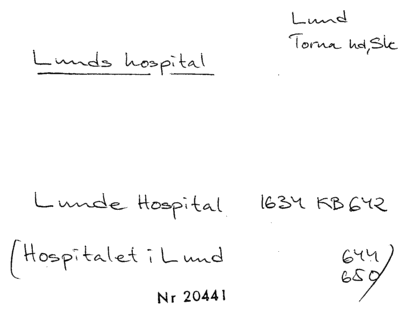 Lund
Torna hd, Sk
Lunds hospital
Lunde Hospital 1634 KB 642
(Hospitalet i Lund 644
650)
Nr 20441